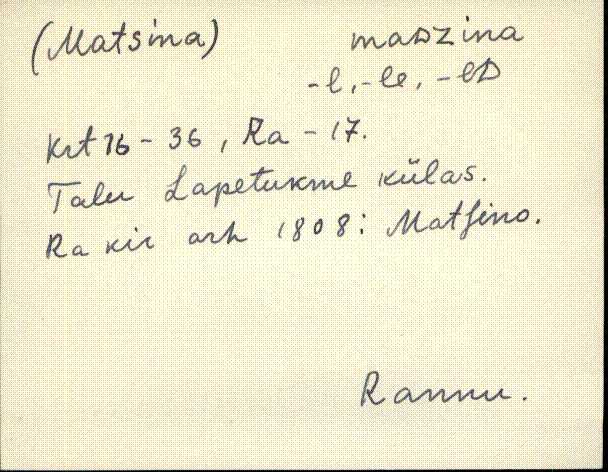 (Matsina) maᴅzina
-l, -le, -lᴅ
Krt 16 - 36, Ra - 17.
Talu Lapetukme külas.
Ra kir arh 1808: Matſino.
Rannu.